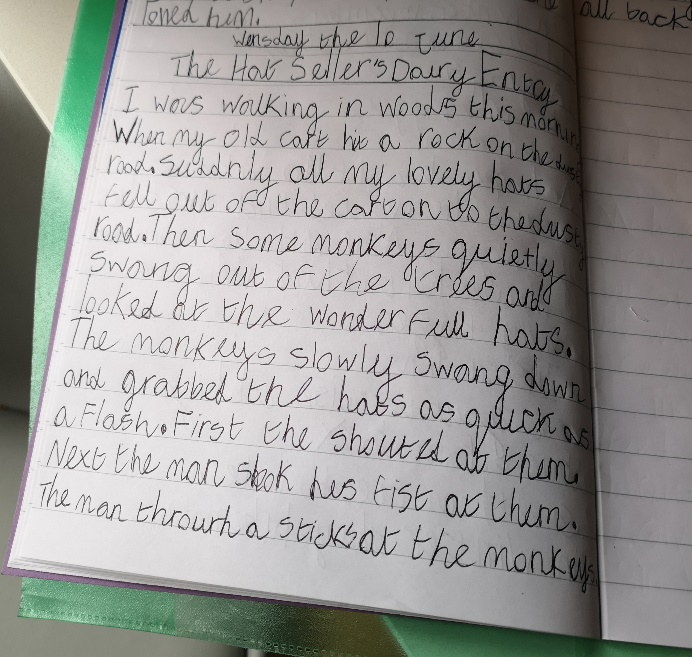 loved him.
all back
Wensday the 10 June
The Hat Seller's Dairy Entry
I was walking in woods this mornin
When my old cart hit a rock on the dust
road. Suddnly all my lovely hats
fell out of the cart on to the dust
road. Then some monkeys quietly
swang out of the trees and
looked at the wonderfull hats.
The monkeys slowly swang down
and grabbed the hats as quick as
a flash. First the shouted at them.
Next the man shook his fist at them.
The man throurh a sticks at the monkeys